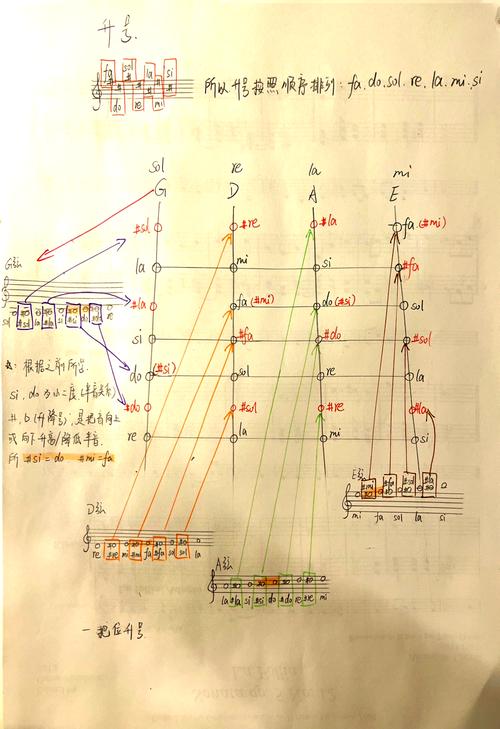 升号.
fa sol la si
do re mi
所以升号按照顺序排列: fa. do. sol. re. la. mi. si
sol re la mi
G D A E
#sol #re #la fa (#mi)
la mi si #fa
#la fa (#mi) do (#si) sol
si #fa #do #sol
do (#si) sol re la
#do #sol #re #la
re la mi si
G弦
sol #sol la #la si #si do #do re
☆: 根据之前所学.
si, do 为小二度(半音关系)
#, b (升降号); 是把音向上
或向下升高/降低半音.
所 #si = do #mi = fa
D弦
re #re mi #mi fa #fa sol #sol la
A弦
la #la si #si do #do re #re mi
E弦
#mi #fa #sol #la
mi fa sol la si
一把位升号